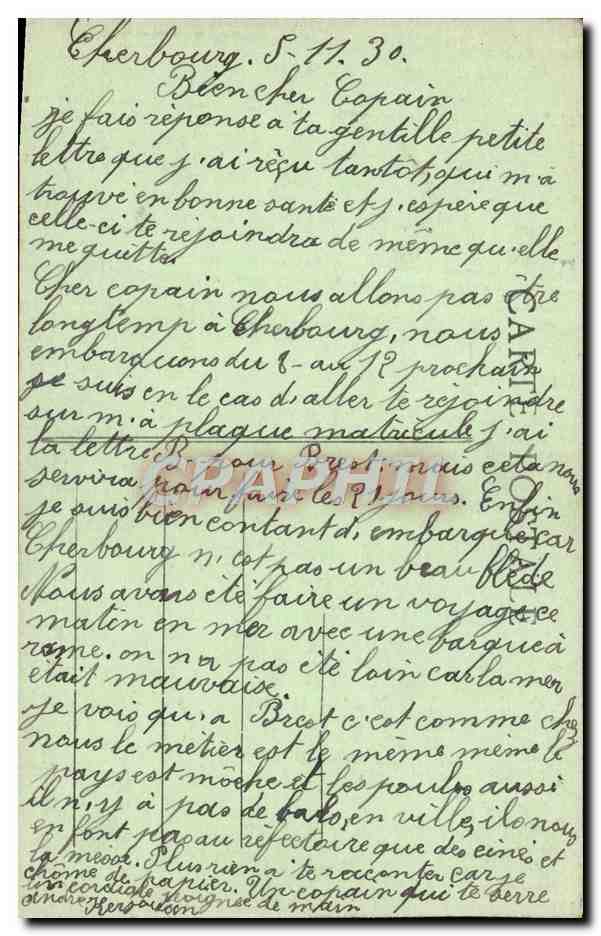 Cherbourg. 5-11.30.
Bien cher Copain
je fais réponse à ta gentille petite
lettre que j'ai réçu tantôt, qui m'à
trouvé en bonne santé et j'espère que
celle-ci te rejoindra de même qu'elle
me quitte.
Cher copain nous allons pas être
longtemp à Cherbourg, nous
embarquons du 8 au 12 prochain
je suis en le cas d'aller te rejoindre
sur m'à plaque matricule j'ai
la lettre B. pour Brest, mais cela nous
servira pour faire les 21 jours. Enfin
je suis bien contant d'embarqué car
Cherbourg n'est pas un beau blède
Nous avons été faire un voyage ce
matin en mer avec une barque à
rame. on n'a pas été loin car la mer
était mauvaise.
je vois qu'a Brest c'est comme chez
nous le métier est le même même le
pays est môche et les poules aussi
il n'y à pas de bals, en ville, ils nous
en font pas au réfectoire que des cinés et
la messe. Plus rien à te raconter car je
chôme de papier. Un copain qui te serre
un cordiale poignée de main
andré
CARTE POSTALE
CPAPHIL